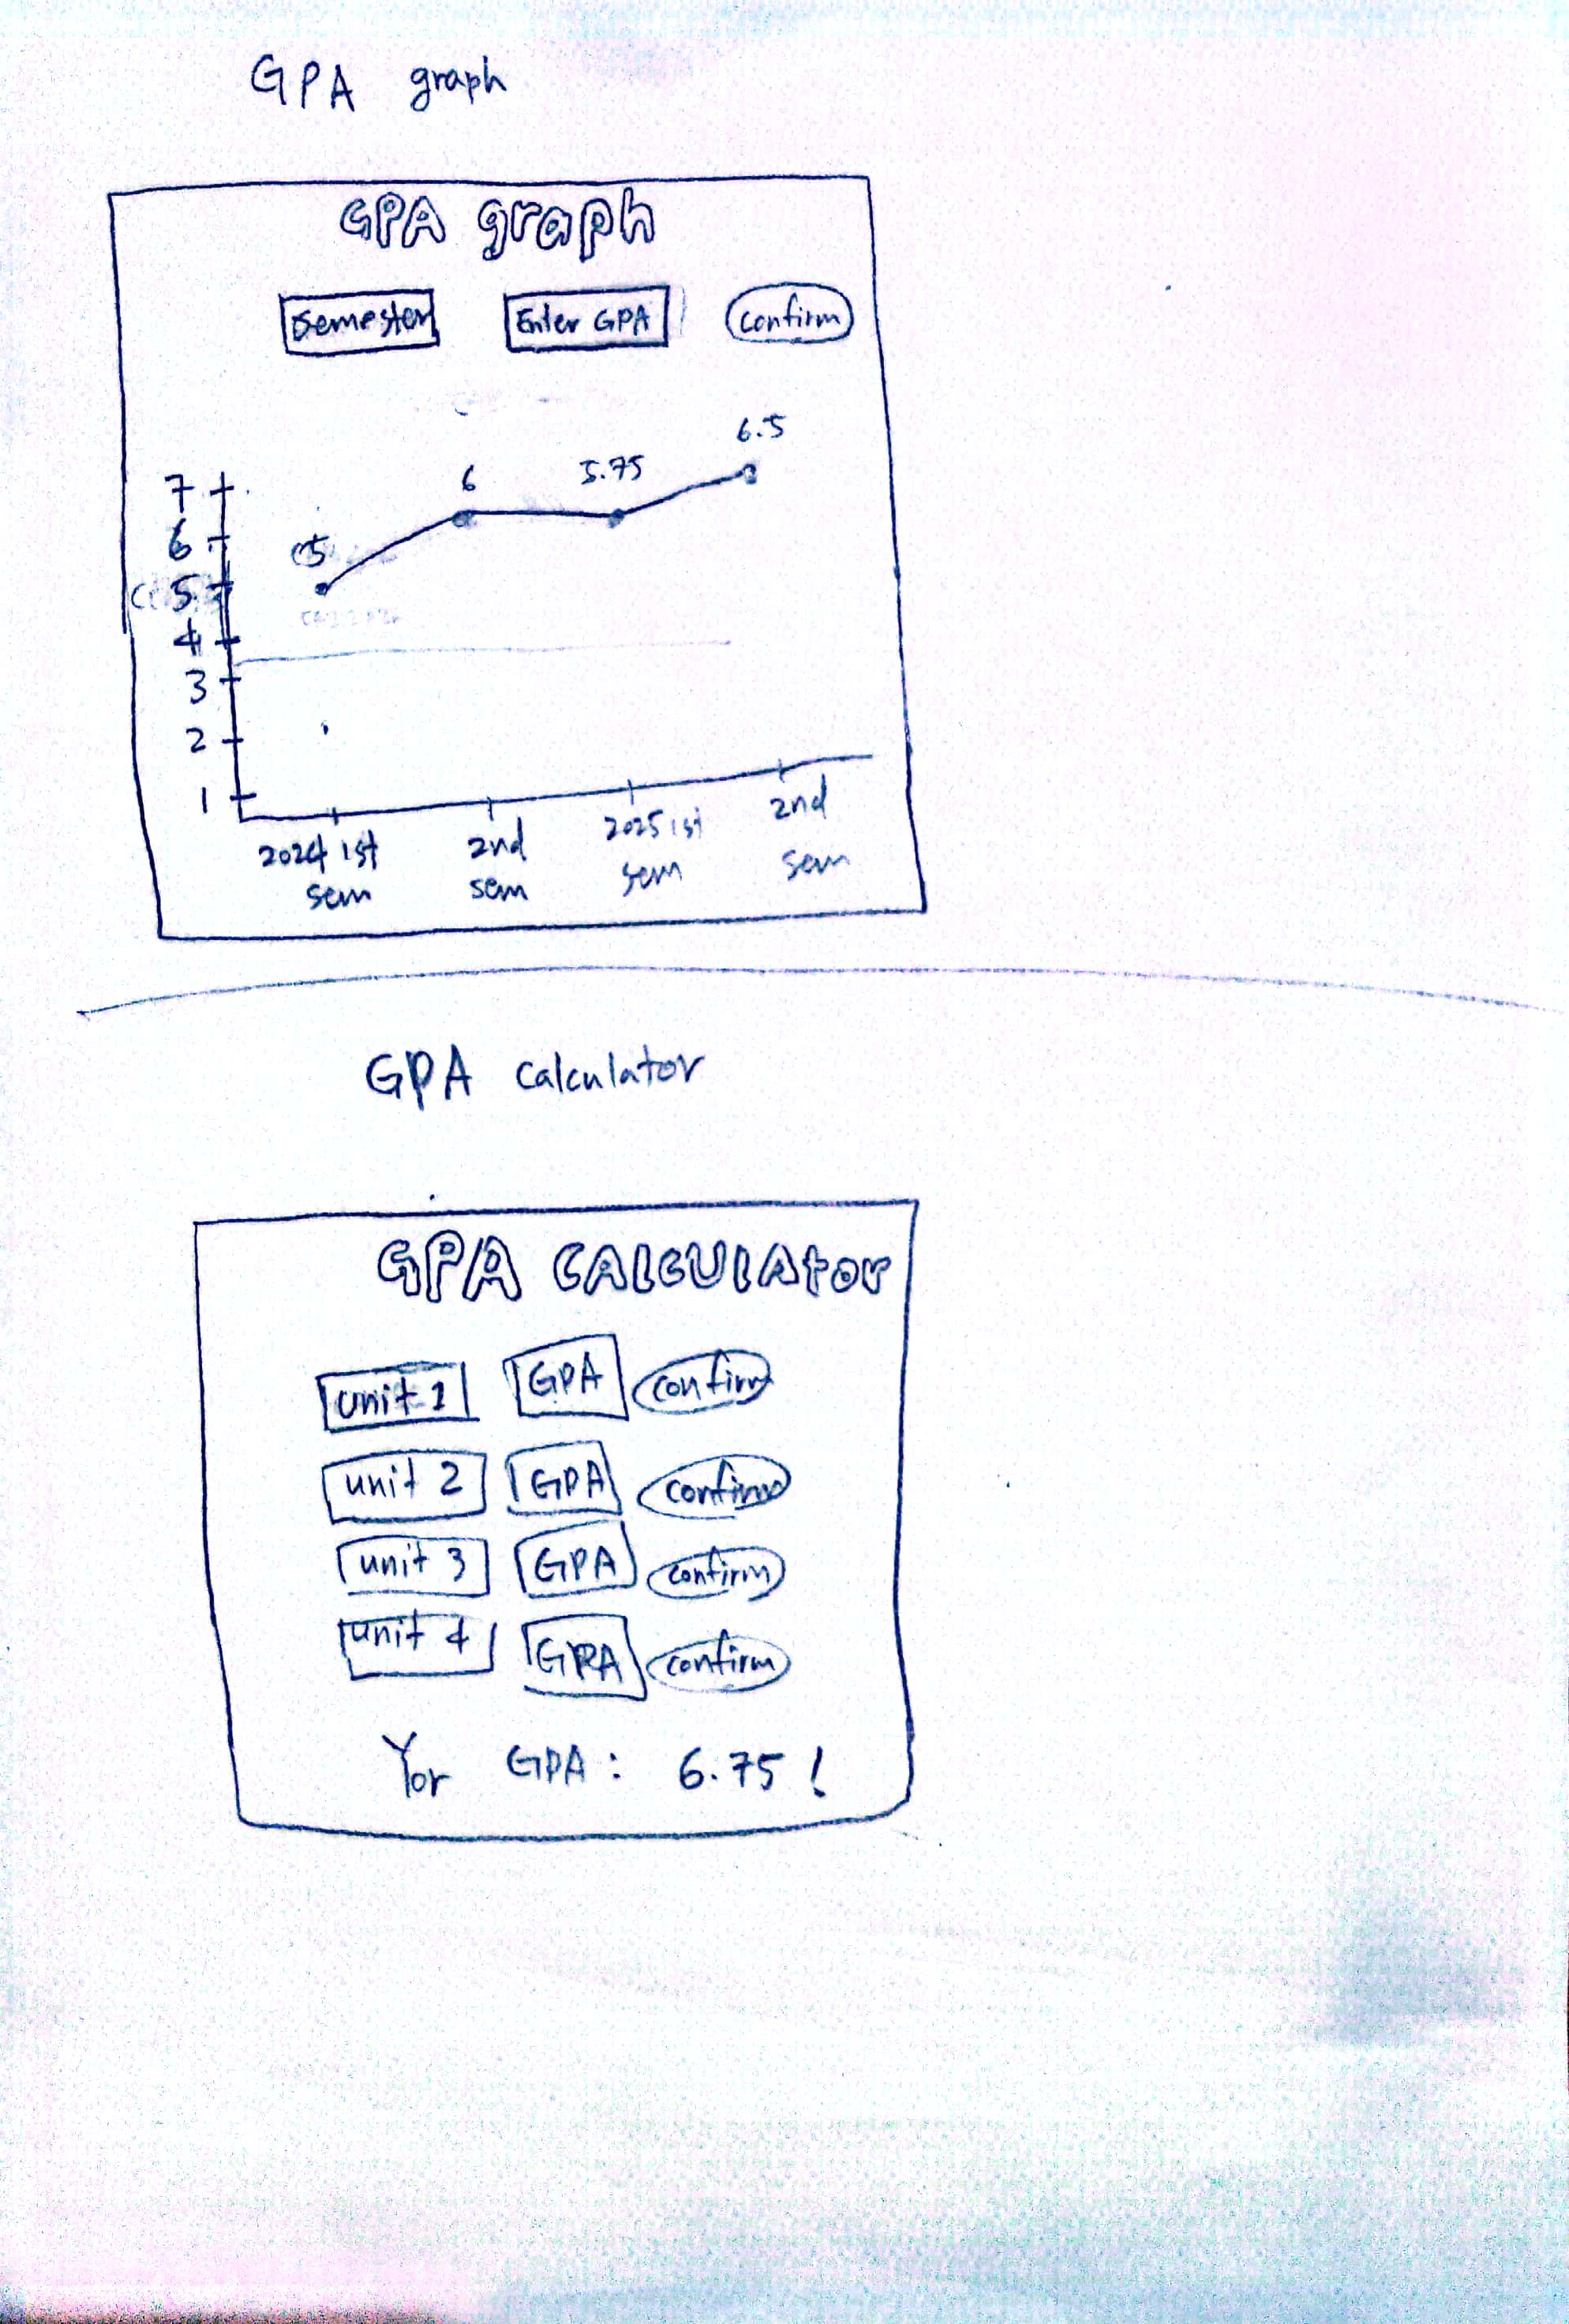 GPA graph
GPA graph
Semester Enter GPA confirm
6.5
6 5.75
7
6 5
5
4
3
2
1
2024 1st 2nd 2025 1st 2nd
sem sem sem sem
GPA calculator
GPA CALCULAtor
unit 1 GPA confirm
unit 2 GPA confirm
unit 3 GPA confirm
unit 4 GPA confirm
Yor GPA: 6.75!